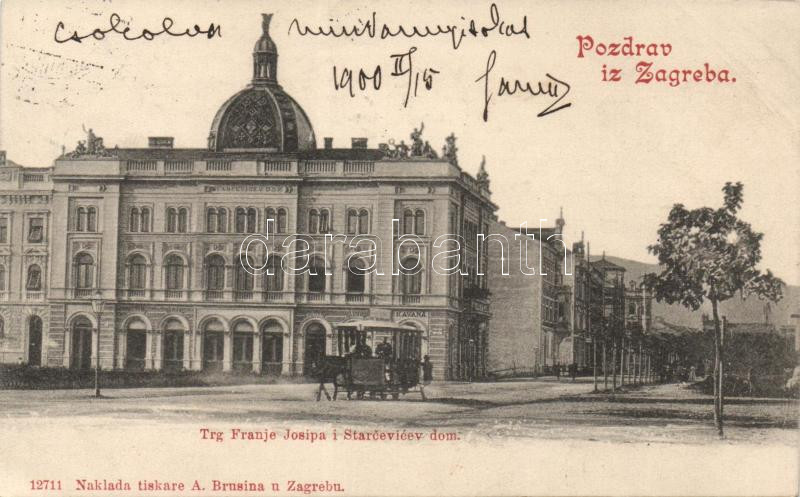 csokolva mindannyiotokat
1900 II/15
Pozdrav
iz Zagreba.
STARČEVIĆEV DOM
KAVANA
darabanth.com
Trg Franje Josipa i Starčevićev dom.
12711 Naklada tiskare A. Brusina u Zagrebu.